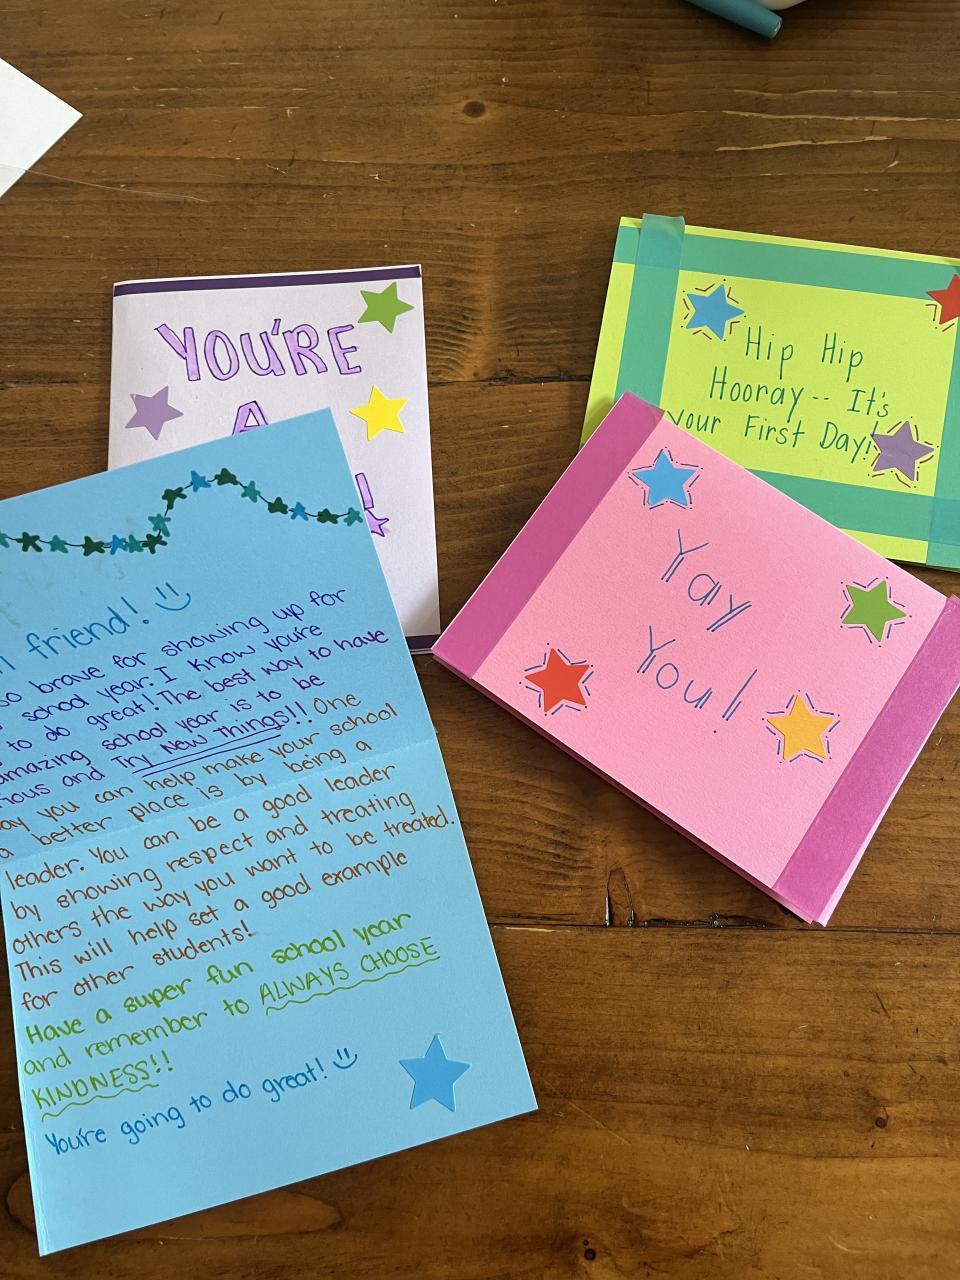 YOU'RE
A
!
Hip Hip
Hooray-- It's
your First Day!
Yay
You!
friend!
so brave for showing up for
school year. I know you're
to do great! The best way to have
amazing school year is to be
and Try New Things!! One
way you can help make your school
a better place is by being a
leader. You can be a good leader
by showing respect and treating
others the way you want to be treated.
This will help set a good example
for other students!
Have a super fun school year
and remember to ALWAYS CHOOSE
KINDNESS!!
You're going to do great!